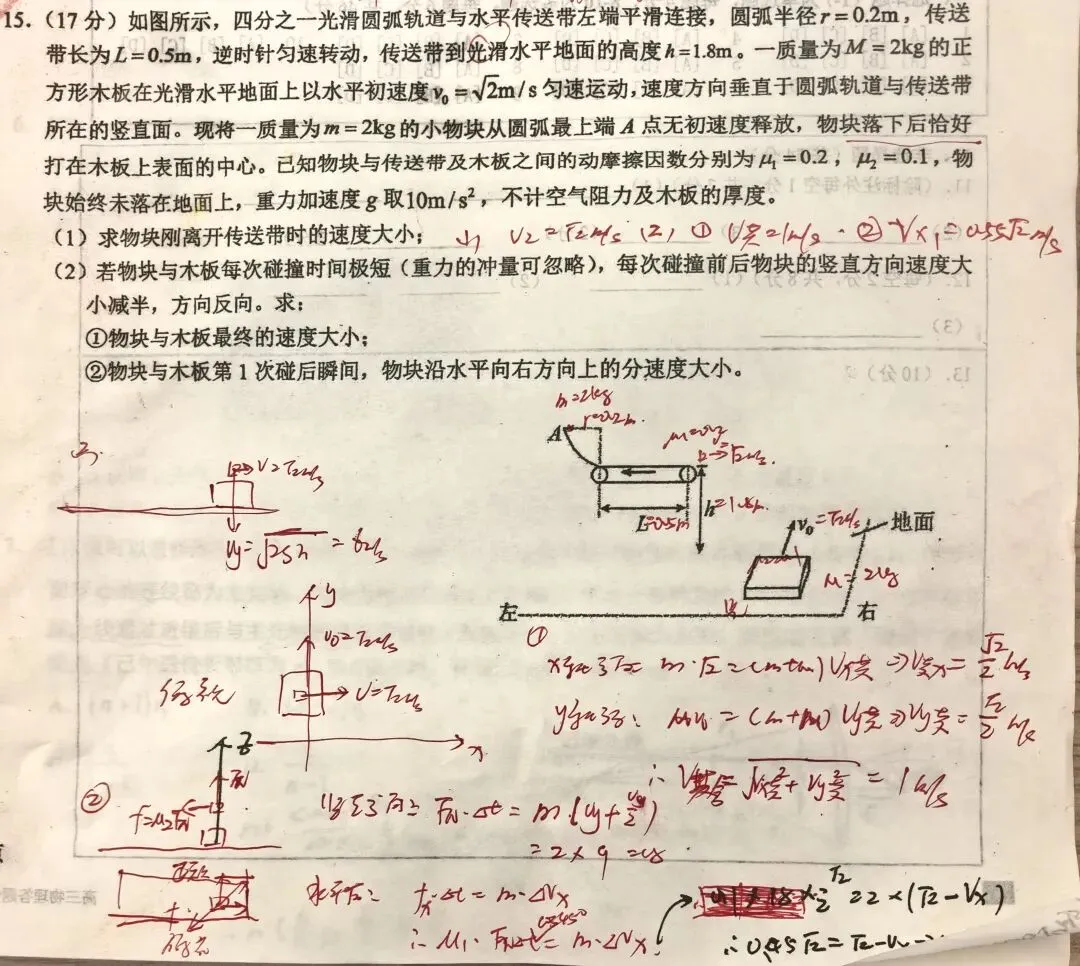 15.（17分）如图所示，四分之一光滑圆弧轨道与水平传送带左端平滑连接，圆弧半径r=0.2m，传送
带长为L=0.5m，逆时针匀速转动，传送带到光滑水平地面的高度h=1.8m。一质量为M=2kg的正
方形木板在光滑水平地面上以水平初速度v₀=√2m/s匀速运动，速度方向垂直于圆弧轨道与传送带
所在的竖直面。现将一质量为m=2kg的小物块从圆弧最上端A点无初速度释放，物块落下后恰好
打在木板上表面的中心。已知物块与传送带及木板之间的动摩擦因数分别为μ₁=0.2，μ₂=0.1，物
块始终未落在地面上，重力加速度g取10m/s²，不计空气阻力及木板的厚度。
（1）求物块刚离开传送带时的速度大小；
(1) V2=√2m/s (2) ① V共=1m/s · ② Vx₁=0.55√2m/s
（2）若物块与木板每次碰撞时间极短（重力的冲量可忽略），每次碰撞前后物块的竖直方向速度大
小减半，方向反向。求：
①物块与木板最终的速度大小；
②物块与木板第1次碰后瞬间，物块沿水平向右方向上的分速度大小。
m=2kg
r=0.2m
A
√2m/s
L=0.5m
h=1.8m
v₀=√2m/s
地面
M=2kg
左
右
V=√2m/s
vy=√2gh=6m/s
y
v₀=√2m/s
V=√2m/s
x
z
①
m·√2=(m+m)Vx共 ⇒Vx共=√2/2 m/s
Mv₀=(m+M)Vy共⇒Vy共=√2/2 m/s
∴ V共=√Vx共²+Vy共²=1m/s
②
FN
f=μ₂FN
FN·Δt=m·(vy+vy/2)
=2×9=18
f·Δt=m·ΔVx
cos45°
=m·ΔVx
√2/2=2×(√2-Vx)
∴0.45√2=√2-